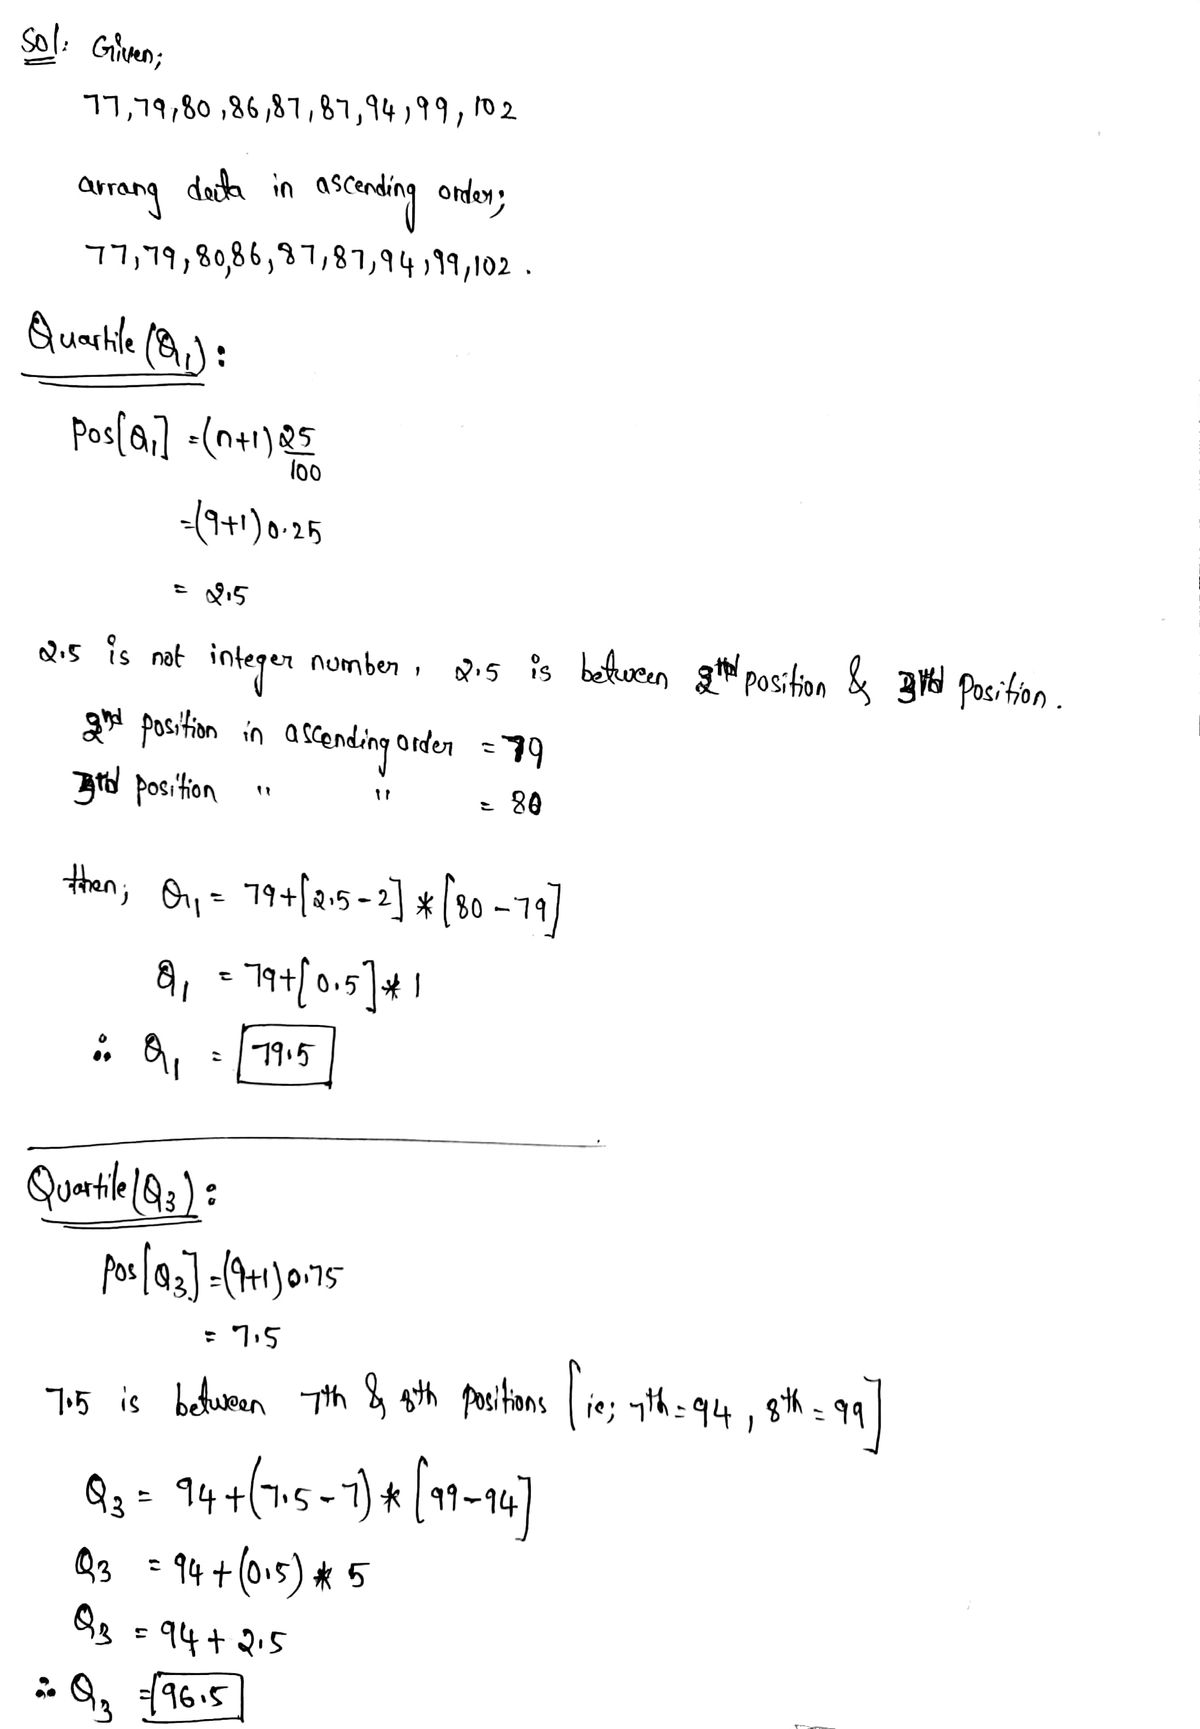 Sol: Given;
77,79,80,86,87,87,94,99,102
arrang data in ascending order;
77,79,80,86,87,87,94,99,102.
Quartile (Q1):
Pos[Q1] = (n+1) 25/100
=(9+1)0.25
= 2.5
2.5 is not integer number, 2.5 is between 2nd position & 3rd Position.
2nd position in ascending order = 79
3rd position " " = 80
then; Q1 = 79+[2.5-2] * [80-79]
Q1 = 79+[0.5] * 1
∴ Q1 = 79.5
Quartile (Q3):
Pos[Q3] = (9+1)0.75
= 7.5
7.5 is between 7th & 8th positions [ie; 7th = 94, 8th = 99]
Q3 = 94+(7.5-7) * [99-94]
Q3 = 94+(0.5) * 5
Q3 = 94+2.5
∴ Q3 = 96.5